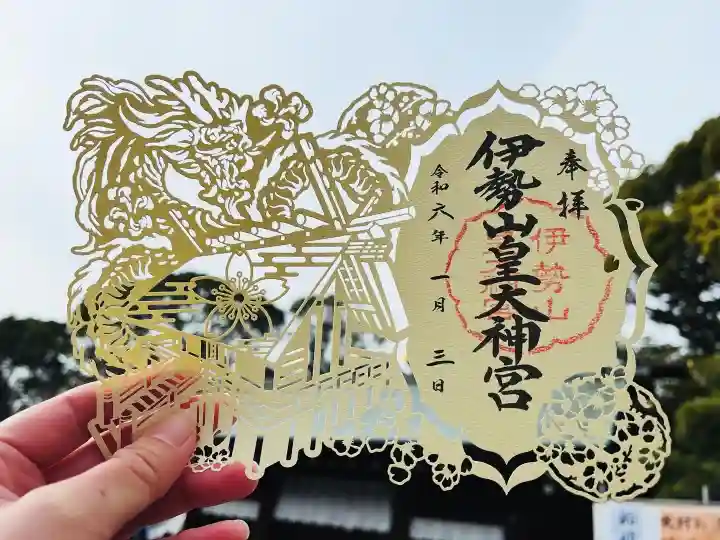 奉拝
伊勢山皇大神宮
令和六年一月三日
伊勢山